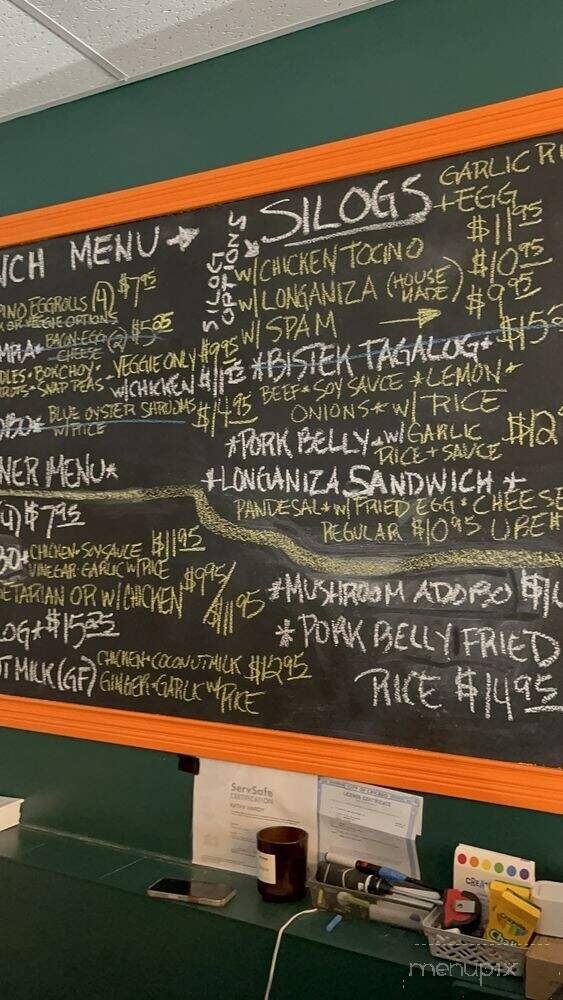 NCH MENU →
PINO EGGROLLS (4) $7.95
OR VEGGIE OPTIONS
BACON EGG (2) $5.85
CHEESE
MPIA*
DLES • BOKCHOY • VEGGIE ONLY $9.95
SNAP PEAS - W/CHICKEN
OBO* BLUE OYSTER SHROOMS $14.95
W/RICE
NER MENU*
(4) $7.95
BO* CHICKEN • SOY SAUCE $11.95
VINEGAR • GARLIC W/RICE
ETARIAN OR W/CHICKEN $9.95/
$11.95
LOG* $15.85
UT MILK (GF) CHICKEN • COCONUT MILK $12.95
GINGER • GARLIC W/RICE
SILOG OPTIONS
SILOGS GARLIC RI
+ EGG
W/ CHICKEN TOCINO $11.95
W/ LONGANIZA (HOUSE MADE) $10.95
W/ SPAM → $9.95
*BISTEK TAGALOG*
BEEF • SOY SAUCE * LEMON *
ONIONS * W/ RICE
*PORK BELLY * W/ GARLIC $12
RICE + SAUCE
*LONGANIZA SANDWICH *
PANDESAL * W/ FRIED EGG * CHEESE
REGULAR $10.95 UBE
*MUSHROOM ADOBO
* PORK BELLY FRIED
RICE $14.95
ServSafe
CERTIFICATION
KATHY HARDY
CITY OF CHICAGO
LICENSE CERTIFICATE
CREA
menupix